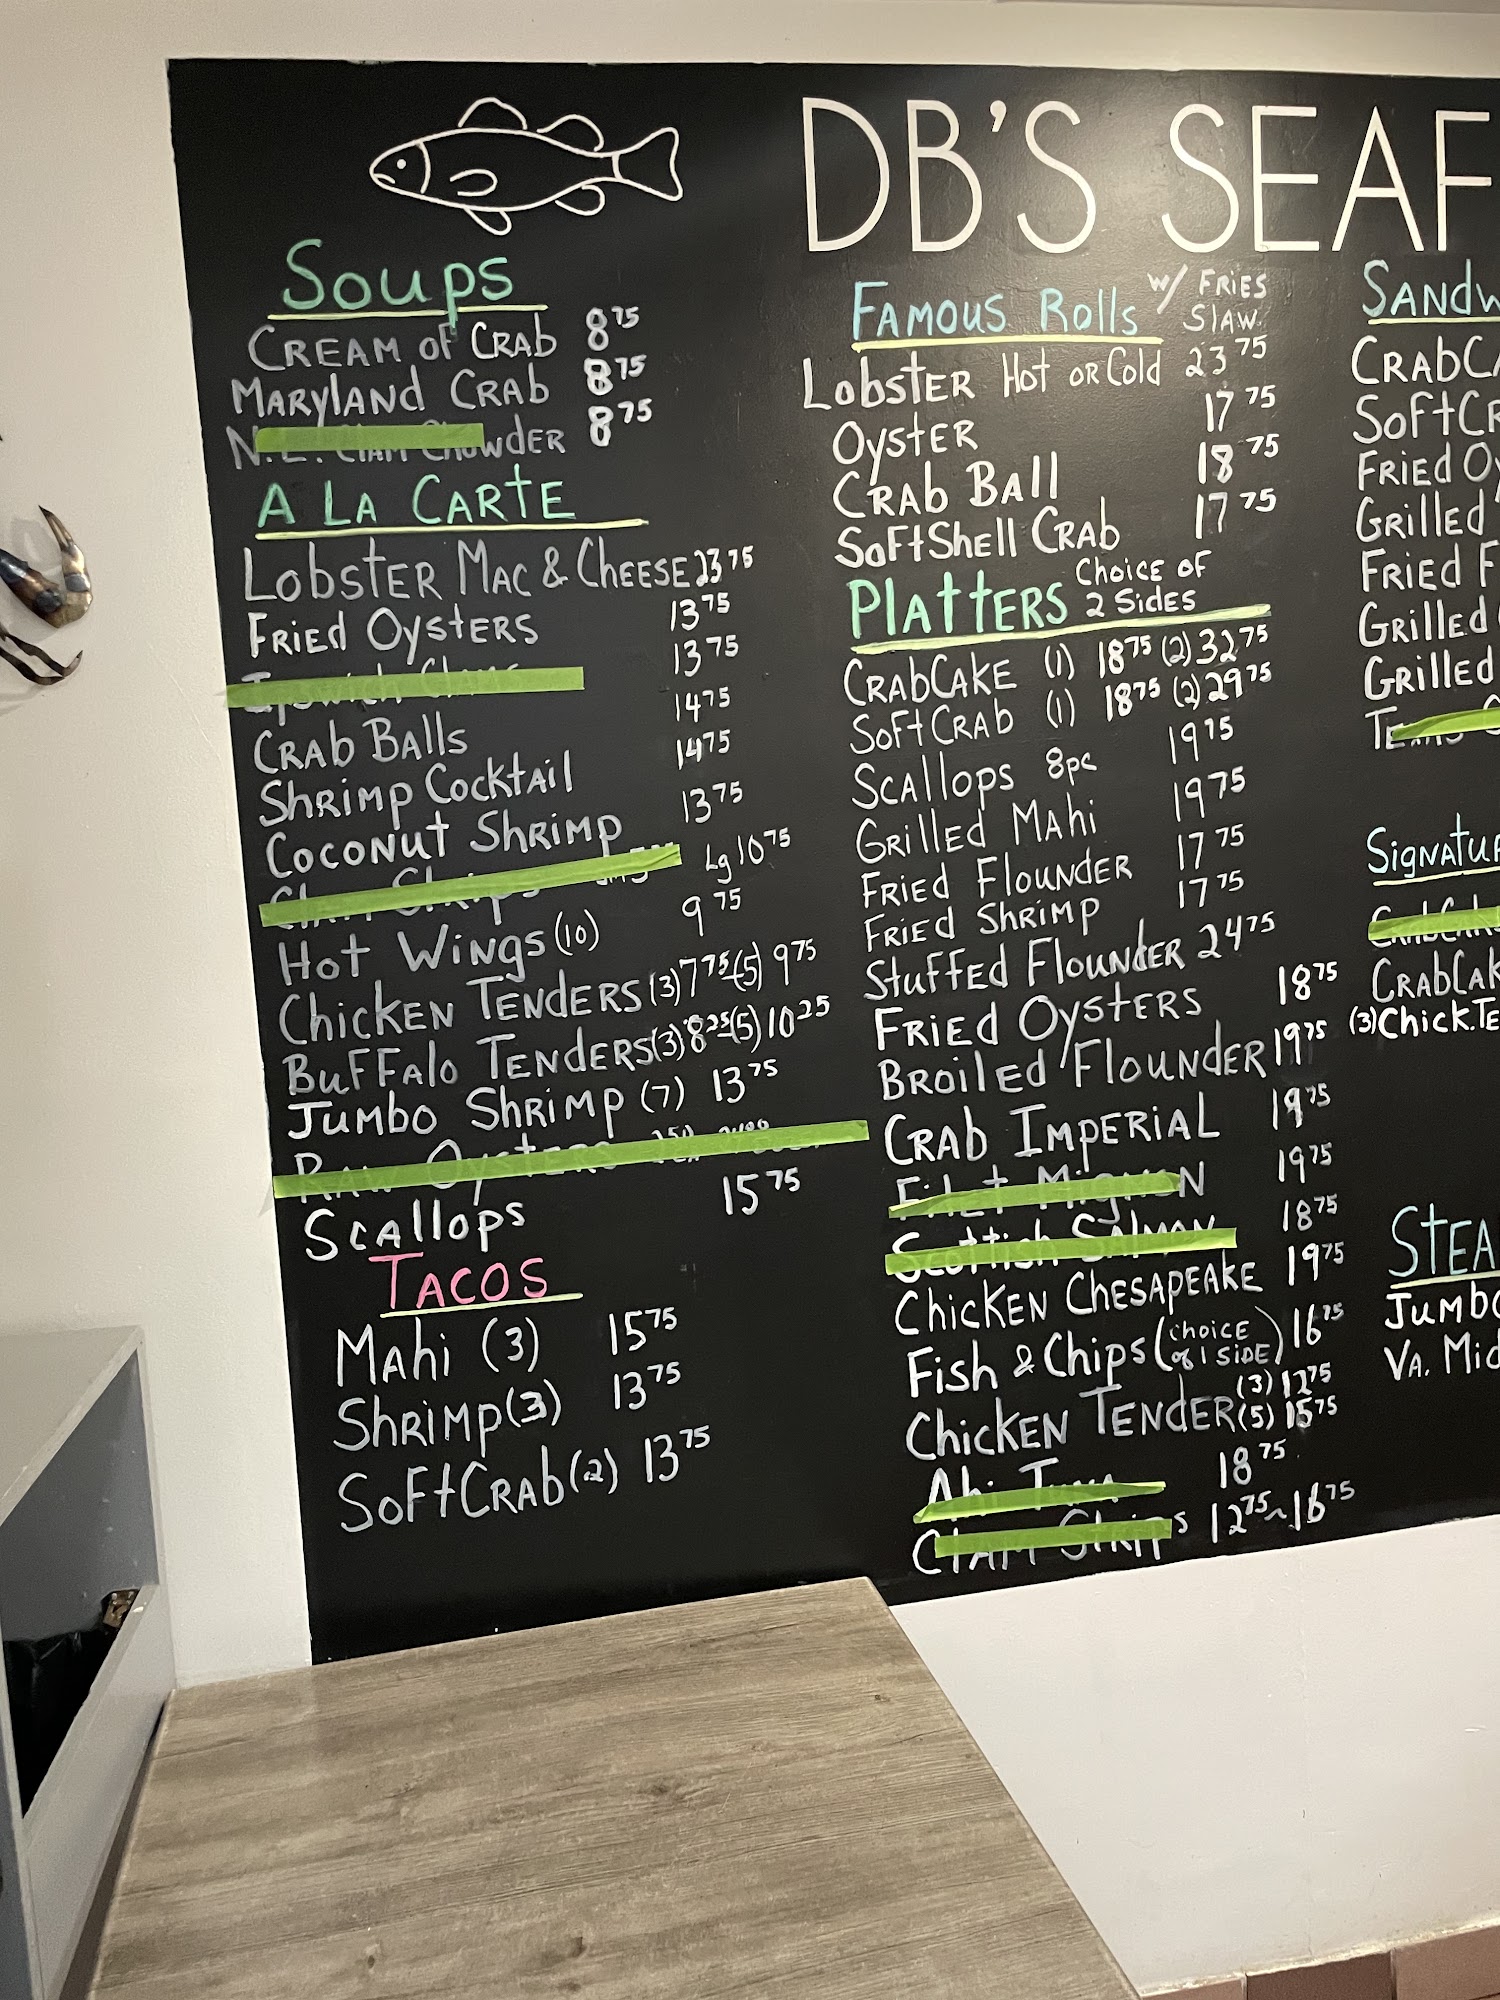 DB'S SEAF
Soups
CREAM of CRAb 8 75
MARYlANd CRAb 8 75
N.E. ClAM ChowdER 8 75
A LA CARTE
LobsTER MAC & ChEESE 23 75
FRiEd OysTERS 13 75
Ipswich Clams 13 75
CRAb BAlls 14 75
ShRiMp CockTAil 14 75
CocoNuT ShRiMp 13 75
ClAM StRips Lg 10 75
HoT WiNgs (10) 9 75
ChickEN TENdERS (3) 7 75 (5) 9 75
BuFFAlo TENdERS (3) 8 25 (5) 10 25
JuMbo ShRiMp (7) 13 75
RAw OysTERS
ScAllops 15 75
TACOS
MAhi (3) 15 75
ShRiMp (3) 13 75
SoFtCRAb (2) 13 75
FAMOUS Rolls w/ FRiES SlAw.
LobsTER HoT oR Cold 23 75
OysTER 17 75
CRAb BAll 18 75
SoFtShEll CRAb 17 75
PlAttERS ChoicE oF 2 SidES
CRAbCAKE (1) 18 75 (2) 32 75
SoFt CRAb (1) 18 75 (2) 29 75
ScAllops 8pc 19 75
GRillEd MAhi 19 75
FRiEd FlouNdER 17 75
FRiEd ShRiMp 17 75
StuFFEd FlouNdER 24 75
FRiEd OysTERS 18 75
BRoilEd FlouNdER 19 75
CRAb IMpERiAl 19 75
FilEt MigNoN 19 75
ScoTTish SAlMoN 18 75
ChickEN ChESApEAkE 19 75
Fish & Chips (choicE of 1 SidE) 16 75
ChickEN TENdER (3) 12 75
(5) 15 75
Ahi TuNA 18 75
ClAM StRips 12 75 ~ 16 75
SANdw
CRAbCA
SoFtCR
FRiEd Oy
GRillEd
FRiEd F
GRillEd
GRillEd
SigNAtuR
CRAbCAK
CRAbCAK
(3) Chick.TE
StEA
JuMbo
VA. Mid